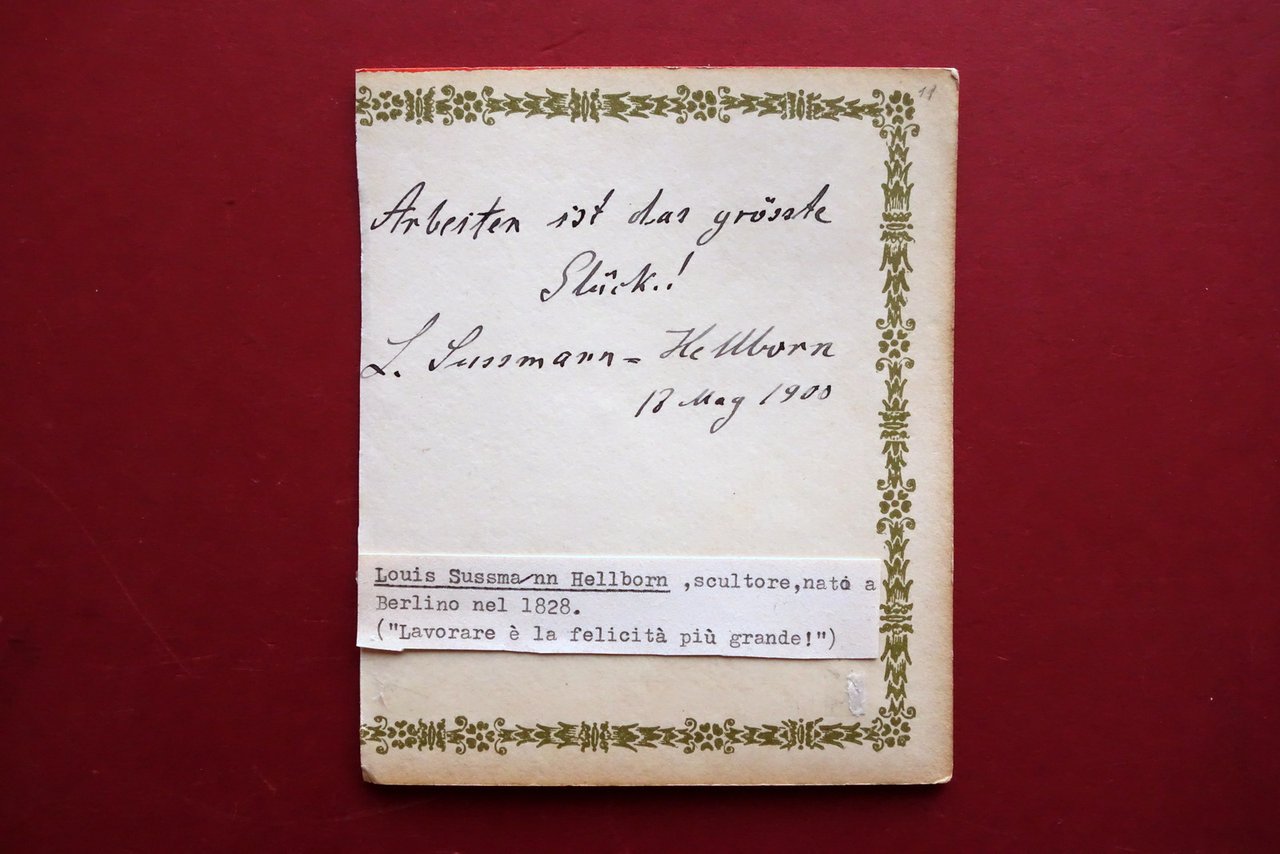 11
Arbeiten ist das grösste
Glück.!
L. Sussmann=Hellborn
18 May 1900
Louis Sussmann Hellborn ,scultore,nato a
Berlino nel 1828.
("Lavorare è la felicità più grande!")